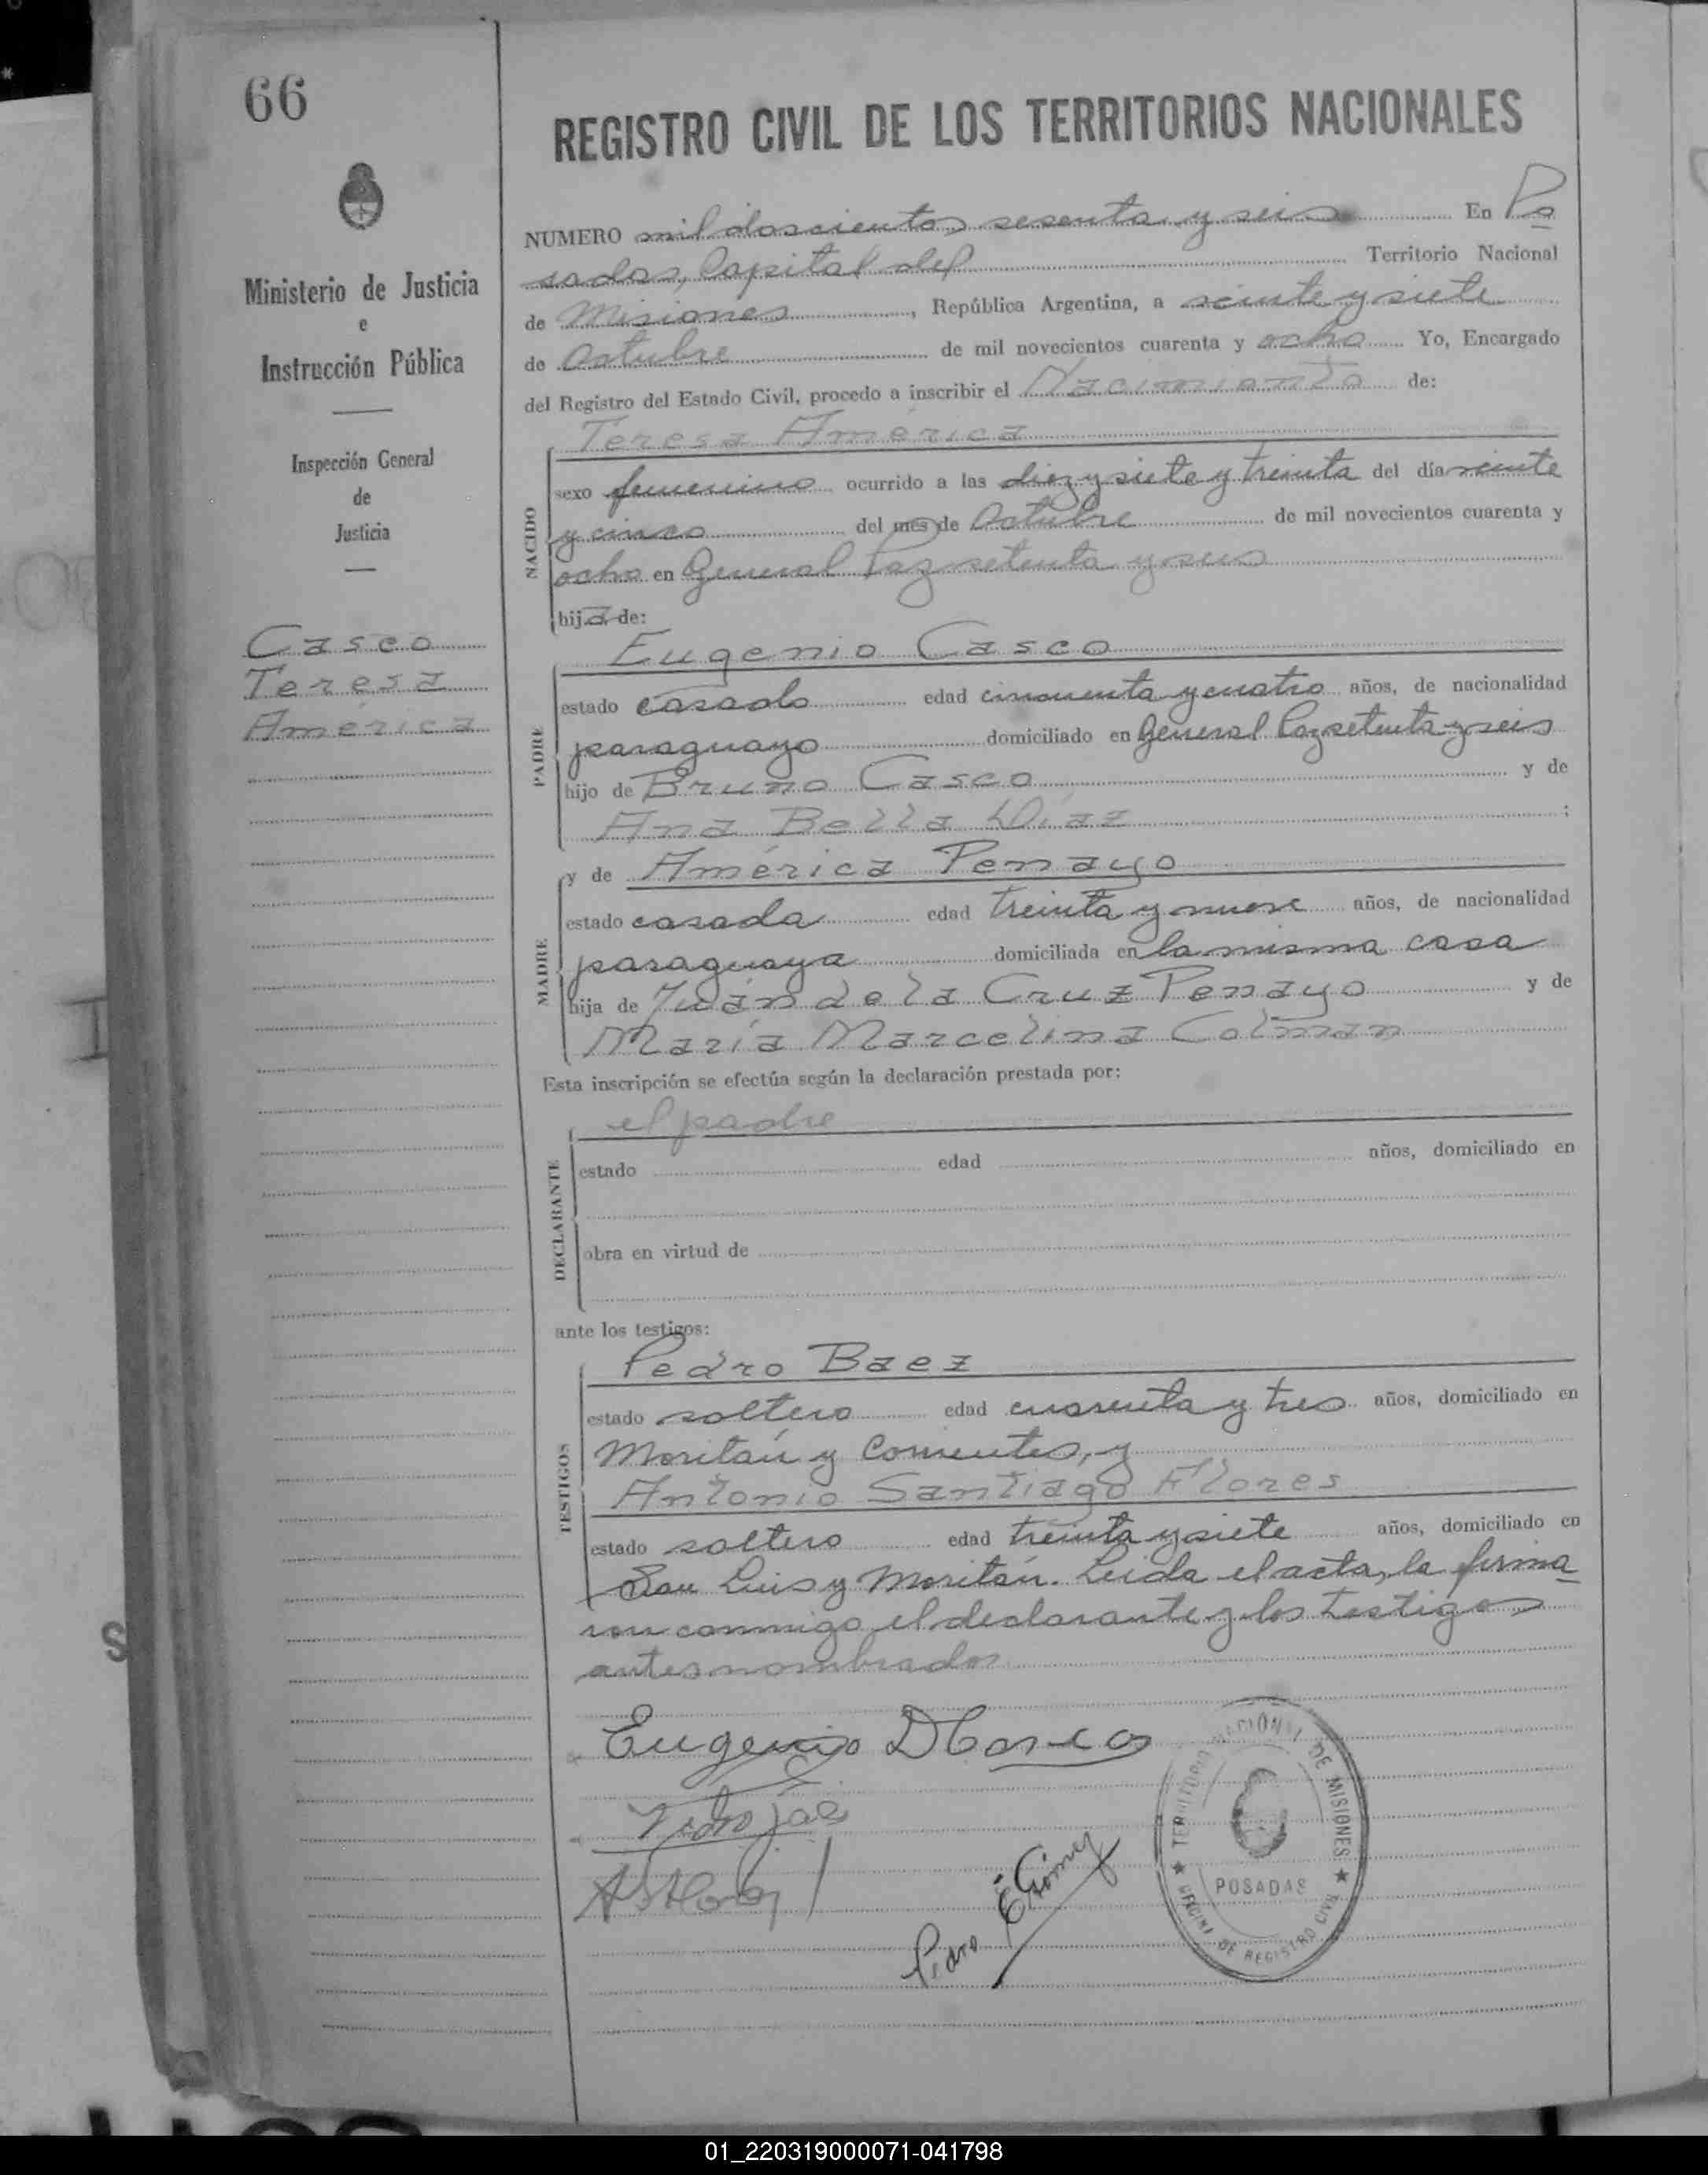 66
REGISTRO CIVIL DE LOS TERRITORIOS NACIONALES
NUMERO mil doscientos sesenta y seis En Po
sadas, Capital del Territorio Nacional
de Misiones, República Argentina, a veinte y siete
de Octubre de mil novecientos cuarenta y ocho Yo, Encargado
del Registro del Estado Civil, procedo a inscribir el Nacimiento de:
Teresa América
Ministerio de Justicia
e
Instrucción Pública
Inspección General
de
Justicia
Casco
Teresa
América
NACIDO
sexo femenino ocurrido a las diez y siete y treinta del día veinte
y cinco del mes de Octubre de mil novecientos cuarenta y
ocho en General Paz setenta y seis
hija de:
Eugenio Casco
PADRE
estado casado edad cincuenta y cuatro años, de nacionalidad
paraguayo domiciliado en General Paz setenta y seis
hijo de Bruno Casco y de
Ana Bella Díaz ;
y de América Penayo
MADRE
estado casada edad treinta y nueve años, de nacionalidad
paraguaya domiciliada en la misma casa
hija de Juán de la Cruz Penayo y de
María Marcelina Colman
Esta inscripción se efectúa según la declaración prestada por:
el padre
DECLARANTE
estado edad años, domiciliado en
obra en virtud de
ante los testigos:
Pedro Baez
TESTIGOS
estado soltero edad cuarenta y tres años, domiciliado en
Moritán y Corrientes, y
Antonio Santiago Flores
estado soltero edad treinta y siete años, domiciliado en
San Luis y Moritán. Leida el acta, la firma
ron conmigo el declarante y los testigos
antes nombrados
Eugenio D Casco
Pedro E Gomez
TERRITORIO NACIONAL DE MISIONES
POSADAS
OFICINA DE REGISTRO CIVIL
01_220319000071-041798